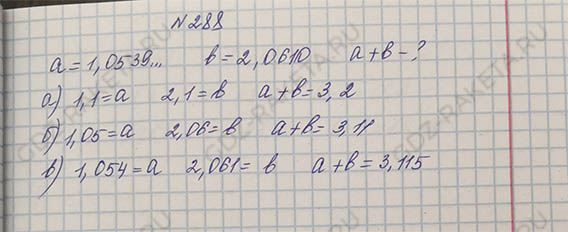 №288
a = 1,0539... b = 2,0610 a + b - ?
а) 1,1 = a 2,1 = b a + b = 3,2
б) 1,05 = a 2,06 = b a + b = 3,11
в) 1,054 = a 2,061 = b a + b = 3,115
GDZ-RAKETA.RU